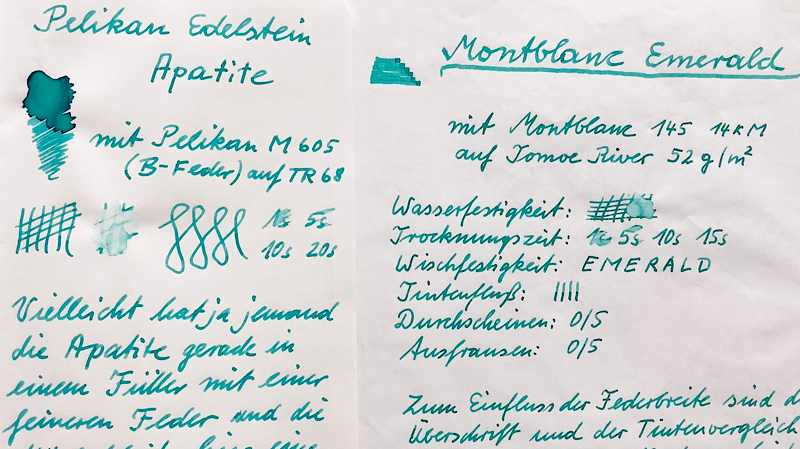 Pelikan Edelstein
Apatite
mit Pelikan M605
(B-Feder) auf TR68
1s 5s
10s 20s
Vielleicht hat ja jemand
die Apatite gerade in
einem Füller mit einer
feineren Feder und die
Montblanc Emerald
mit Montblanc 145 14K M
auf Tomoe River 52 g/m²
Wasserfestigkeit:
Trocknungszeit: 1s 5s 10s 15s
Wischfestigkeit: EMERALD
Tintenfluß: ||||
Durchscheinen: 0/5
Ausfransen: 0/5
Zum Einfluss der Federbreite sind d
Überschrift und der Tintenvergleich